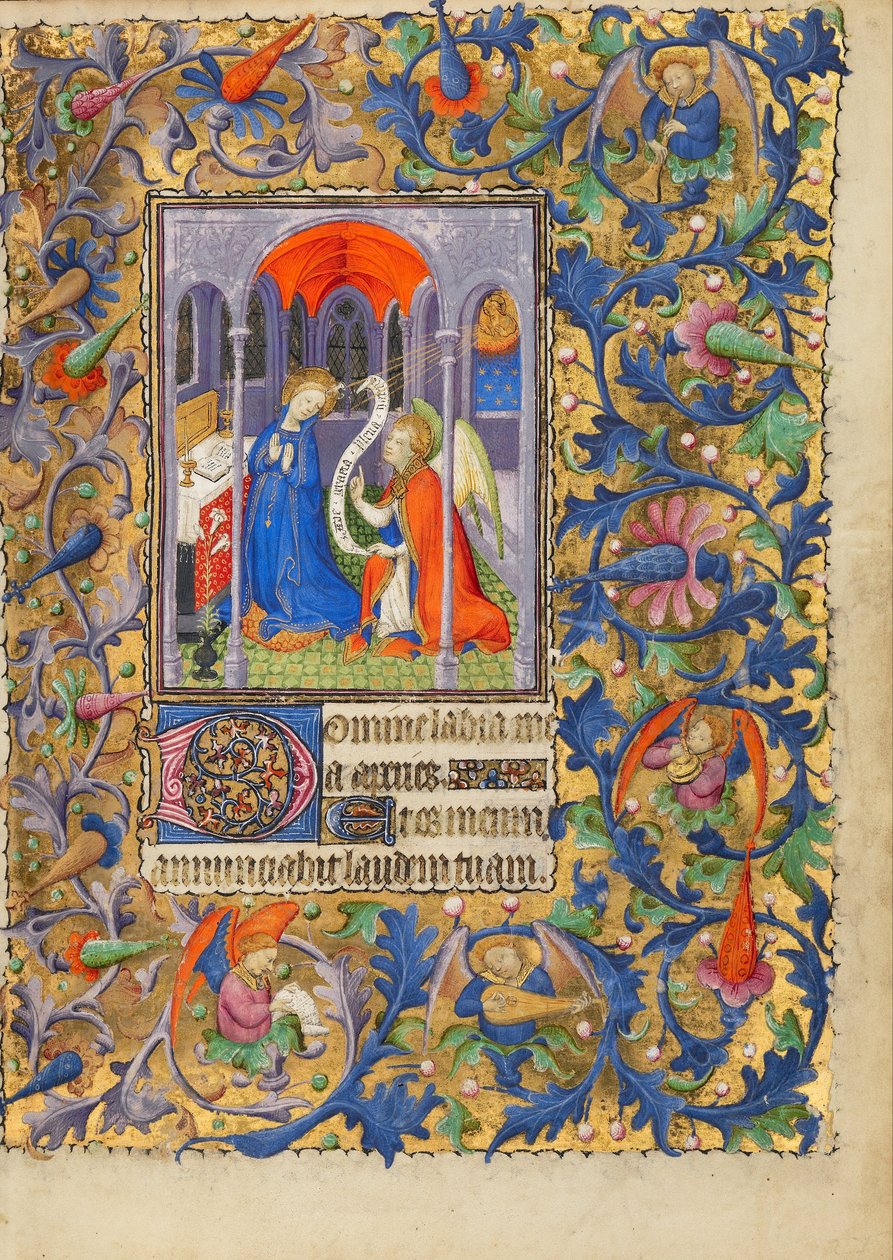 Ave maria gracia plena
Domine labia me
a aperies.
Et os meum
annunciabit laudem tuam.